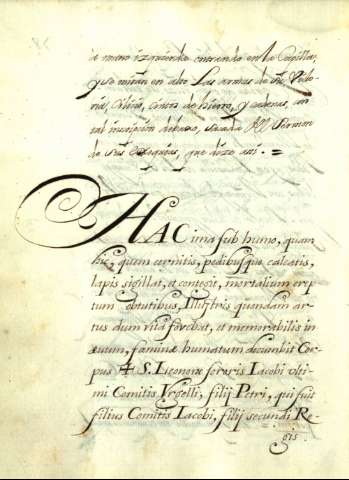 a mano izquierda entrando en la Capilla,
y se miran en alto Las armas de
ria, Cilicio, cintos de hierro, y cadenas, con
tal inscripcion debaxo, sacada del Sermon
de sus Exequias, que dize asi .=
HAC ima sub humo, quam
hic, quem cernitis, pedibusque calcatis,
lapis sigillat, et contegit, mortalium erep
tum obtutibus, Illustris quondam ar
tus dum vita foveret, et memorabilis in
ævum, faminæ humatum decumbit Cor
pus ✠ S. Lionoræ sororis Iacobi ulti
mi Comitis Vrgelli, filij Petri, qui fuit
filius Comitis Iacobi, filij secundi Re
gis